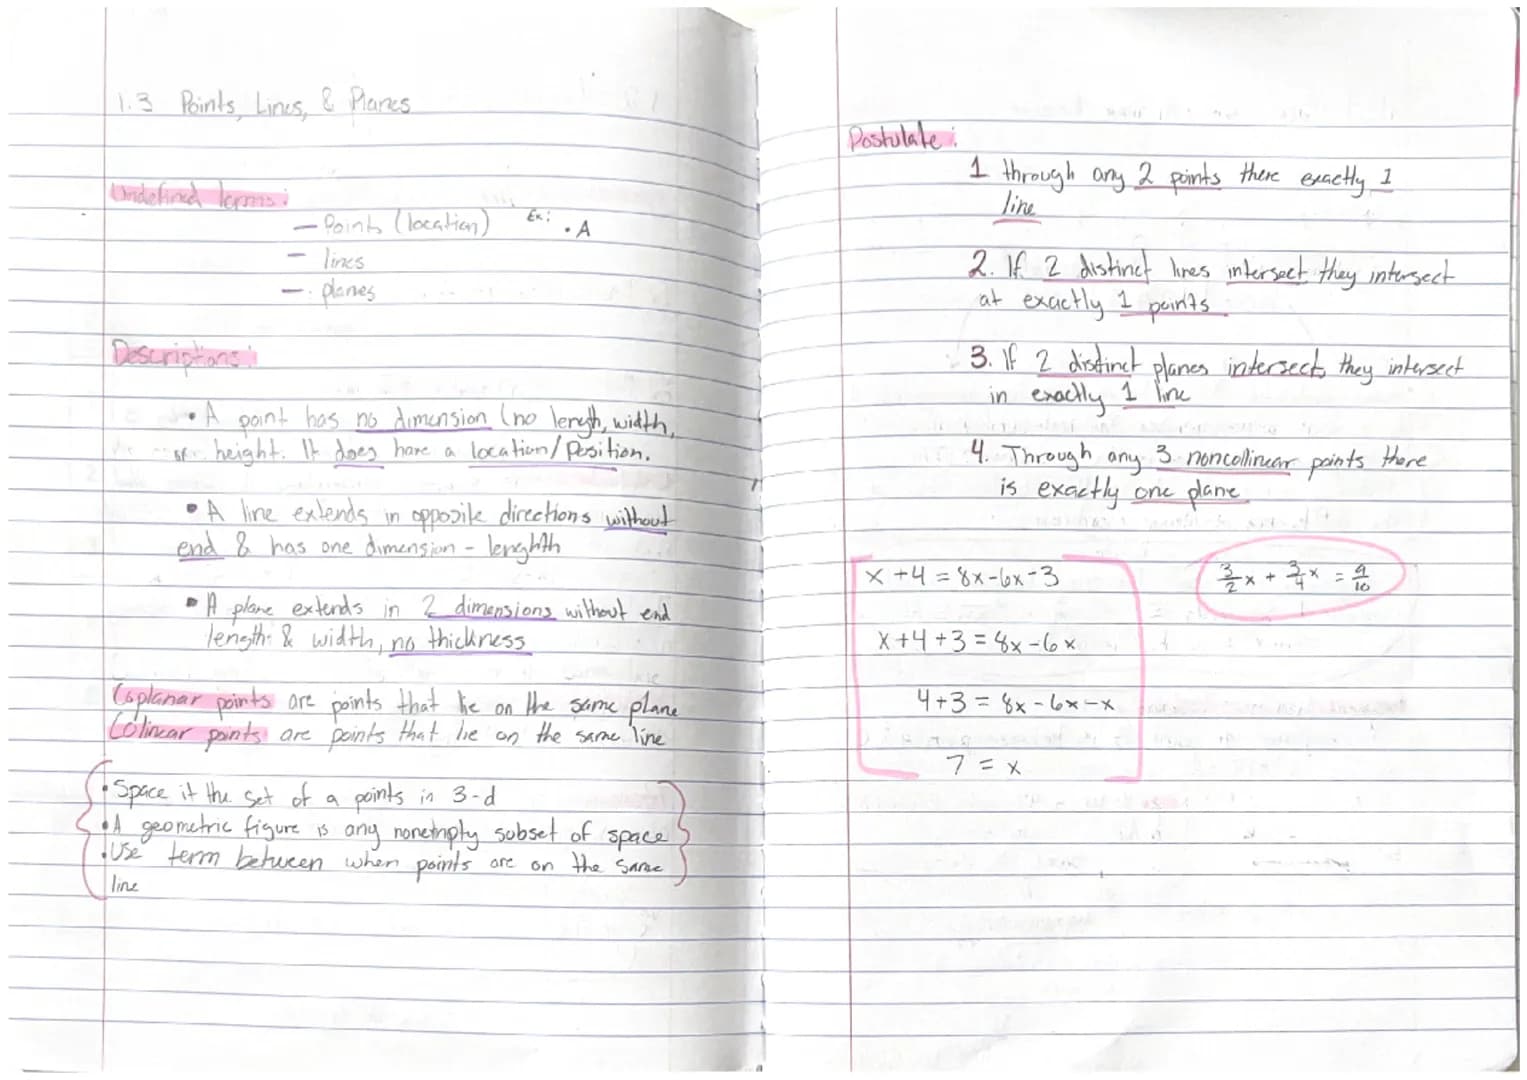 1.3 Points, Lines, & Planes
Undefined terms:
– Points (location) Ex: • A
– lines
– planes
Descriptions:
• A point has no dimension (no length, width,
or height. It does have a location/Position.
• A line extends in opposite directions without
end & has one dimension - lenghth
• A plane extends in 2 dimensions without end
length & width, no thickness
Coplanar points are points that lie on the same plane
Colinear points are points that lie on the same line
• Space it the set of a points in 3-d
• A geometric figure is any nonempty subset of space
• Use term between when points are on the same
line
Postulate:
1 through any 2 points there exactly 1
line
2. If 2 distinct lines intersect they intersect
at exactly 1 points
3. If 2 distinct planes intersect, they intersect
in exactly 1 line
4. Through any 3 noncollinear points there
is exactly one plane
x + 4 = 8x - 6x - 3
x + 4 + 3 = 8x - 6x
4 + 3 = 8x - 6x - x
7 = x
3/2 x + 3/4 x = 9/10